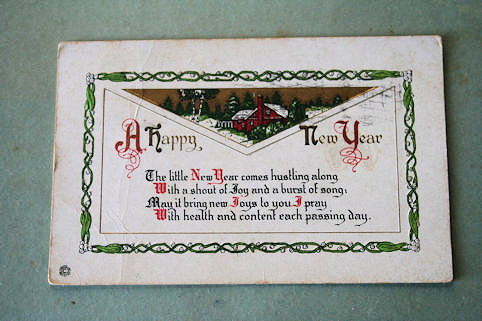 A Happy New Year
The little New Year comes hustling along
With a shout of Joy and a burst of song;
May it bring new Joys to you I pray
With health and content each passing day.